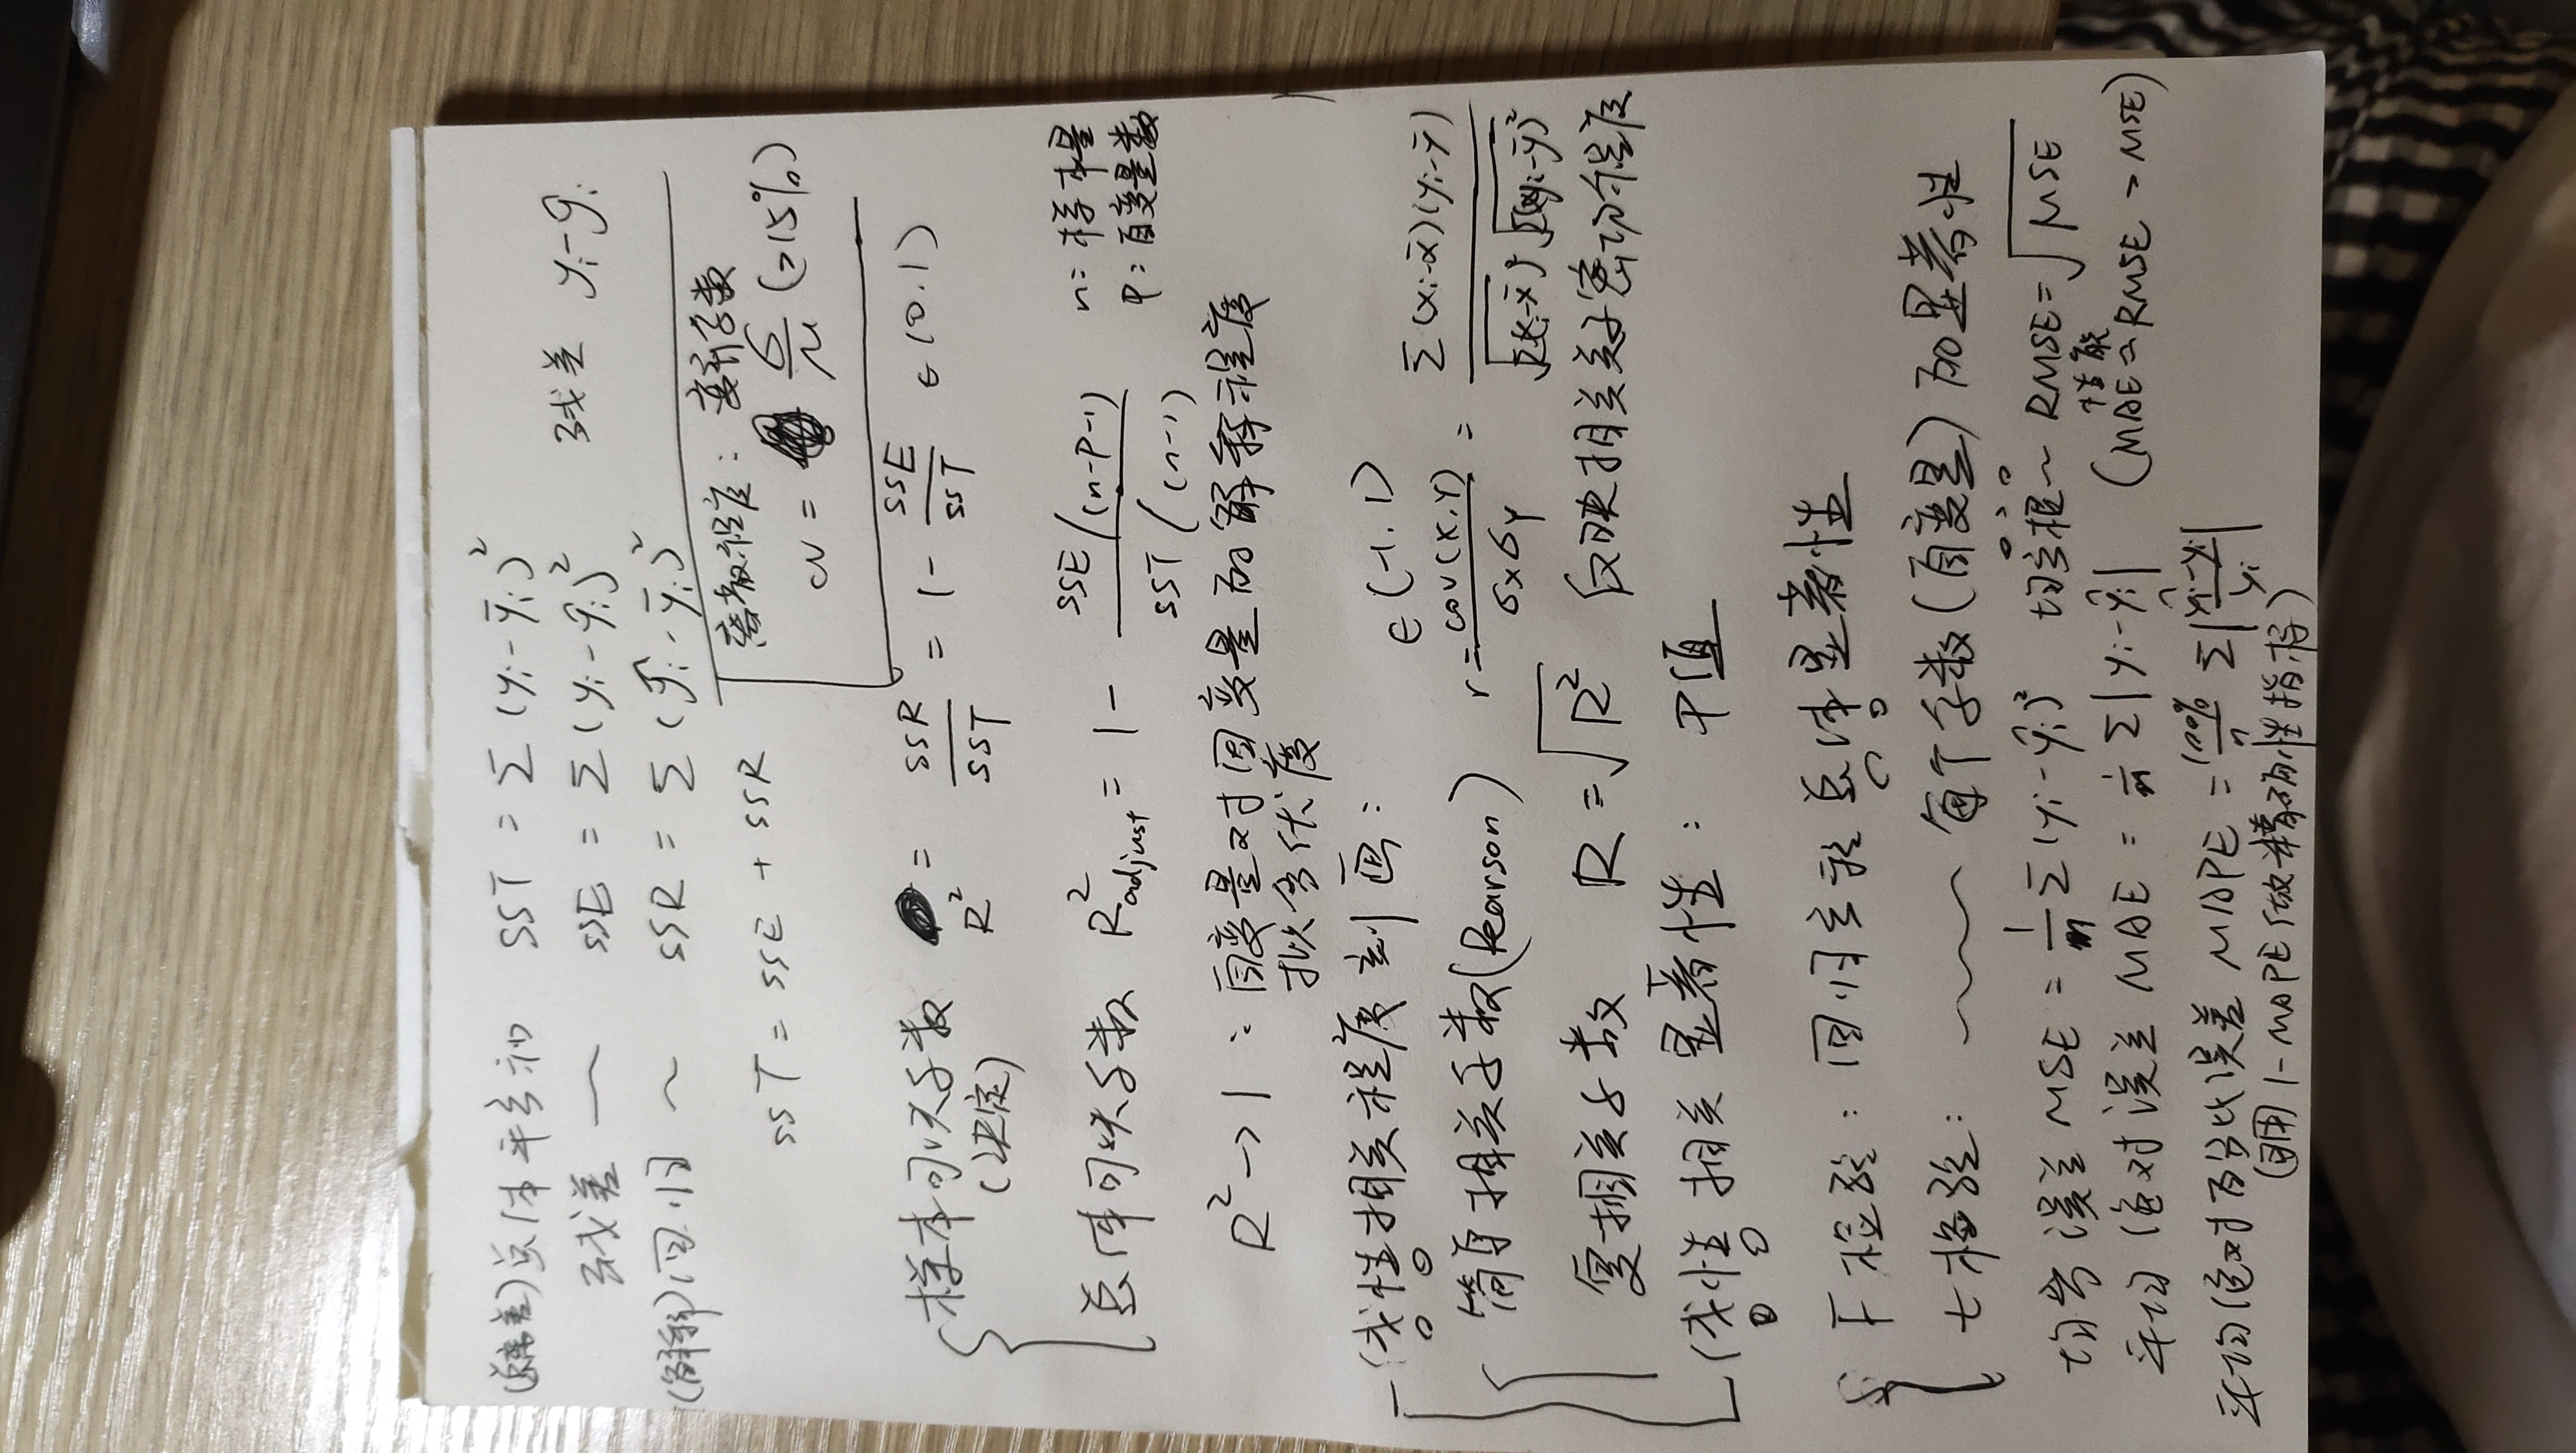 (总离差)总体平方和 SST = Σ(yi - ȳi)²
残差 ～ SSE = Σ(yi - ŷi)² 残差 yi - ŷi
(解释)回归 ～ SSR = Σ(ŷi - ȳi)²
SST = SSE + SSR
离散程度: 变异系数
CV = σ/μ (>15%)
样本可决系数 R² = SSR/SST = 1 - SSE/SST ∈(0.1)
(决定)
总体可决系数 R²adjust = 1 - (SSE/(n-p-1))/(SST/(n-1))
n: 样本量
p: 自变量数
R² → 1 : 自变量对因变量的解释程度
拟合优度
线性相关程度刻画:
简单相关系数(Pearson) r = cov(X,Y)/σxσy = Σ(xi-x̄)(yi-ȳ)/√Σ(xi-x̄)²√Σ(yi-ȳ)² ∈(-1.1)
复相关系数 R = √R² 反映相关关系密切程度
线性相关显著性: P值
F检验: 回归方程总体显著性
t检验: ～～ 每个系数(自变量)的显著性
均方误差 MSE = 1/m Σ(yi - ŷi)² 均方根～ RMSE = √MSE
平均绝对误差 MAE = 1/m Σ|yi - ŷi| (MAE ≈ RMSE > MSE)
性能
平均绝对百分比误差 MAPE = 100%/n Σ|(ŷi - yi)/yi|
(用 1-MAPE 做精确性指标)